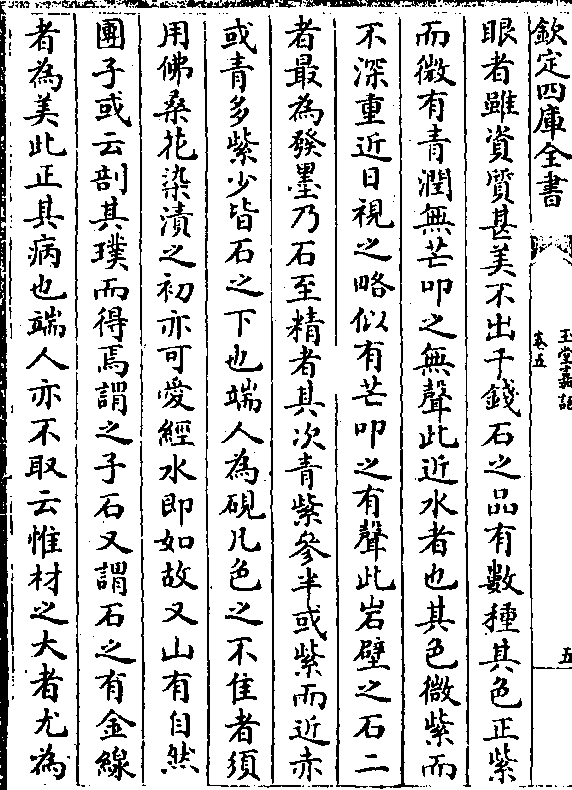 欽定四庫全書
玉堂嘉話
卷五
五
眼者雖資質甚美不出千錢石之品有數種其色正紫
而微有青潤無芒叩之無聲此近水者也其色微紫而
不深重近日視之略似有芒叩之有聲此岩壁之石二
者最為發墨乃石至精者其次青紫參半或紫而近赤
或青多紫少皆石之下也端人為硯凡色之不佳者須
用佛桑花染漬之初亦可愛經水即如故又山有自然
團子或云剖其璞而得焉謂之子石又謂石之有金線
者為美此正其病也端人亦不取云惟材之大者尤為